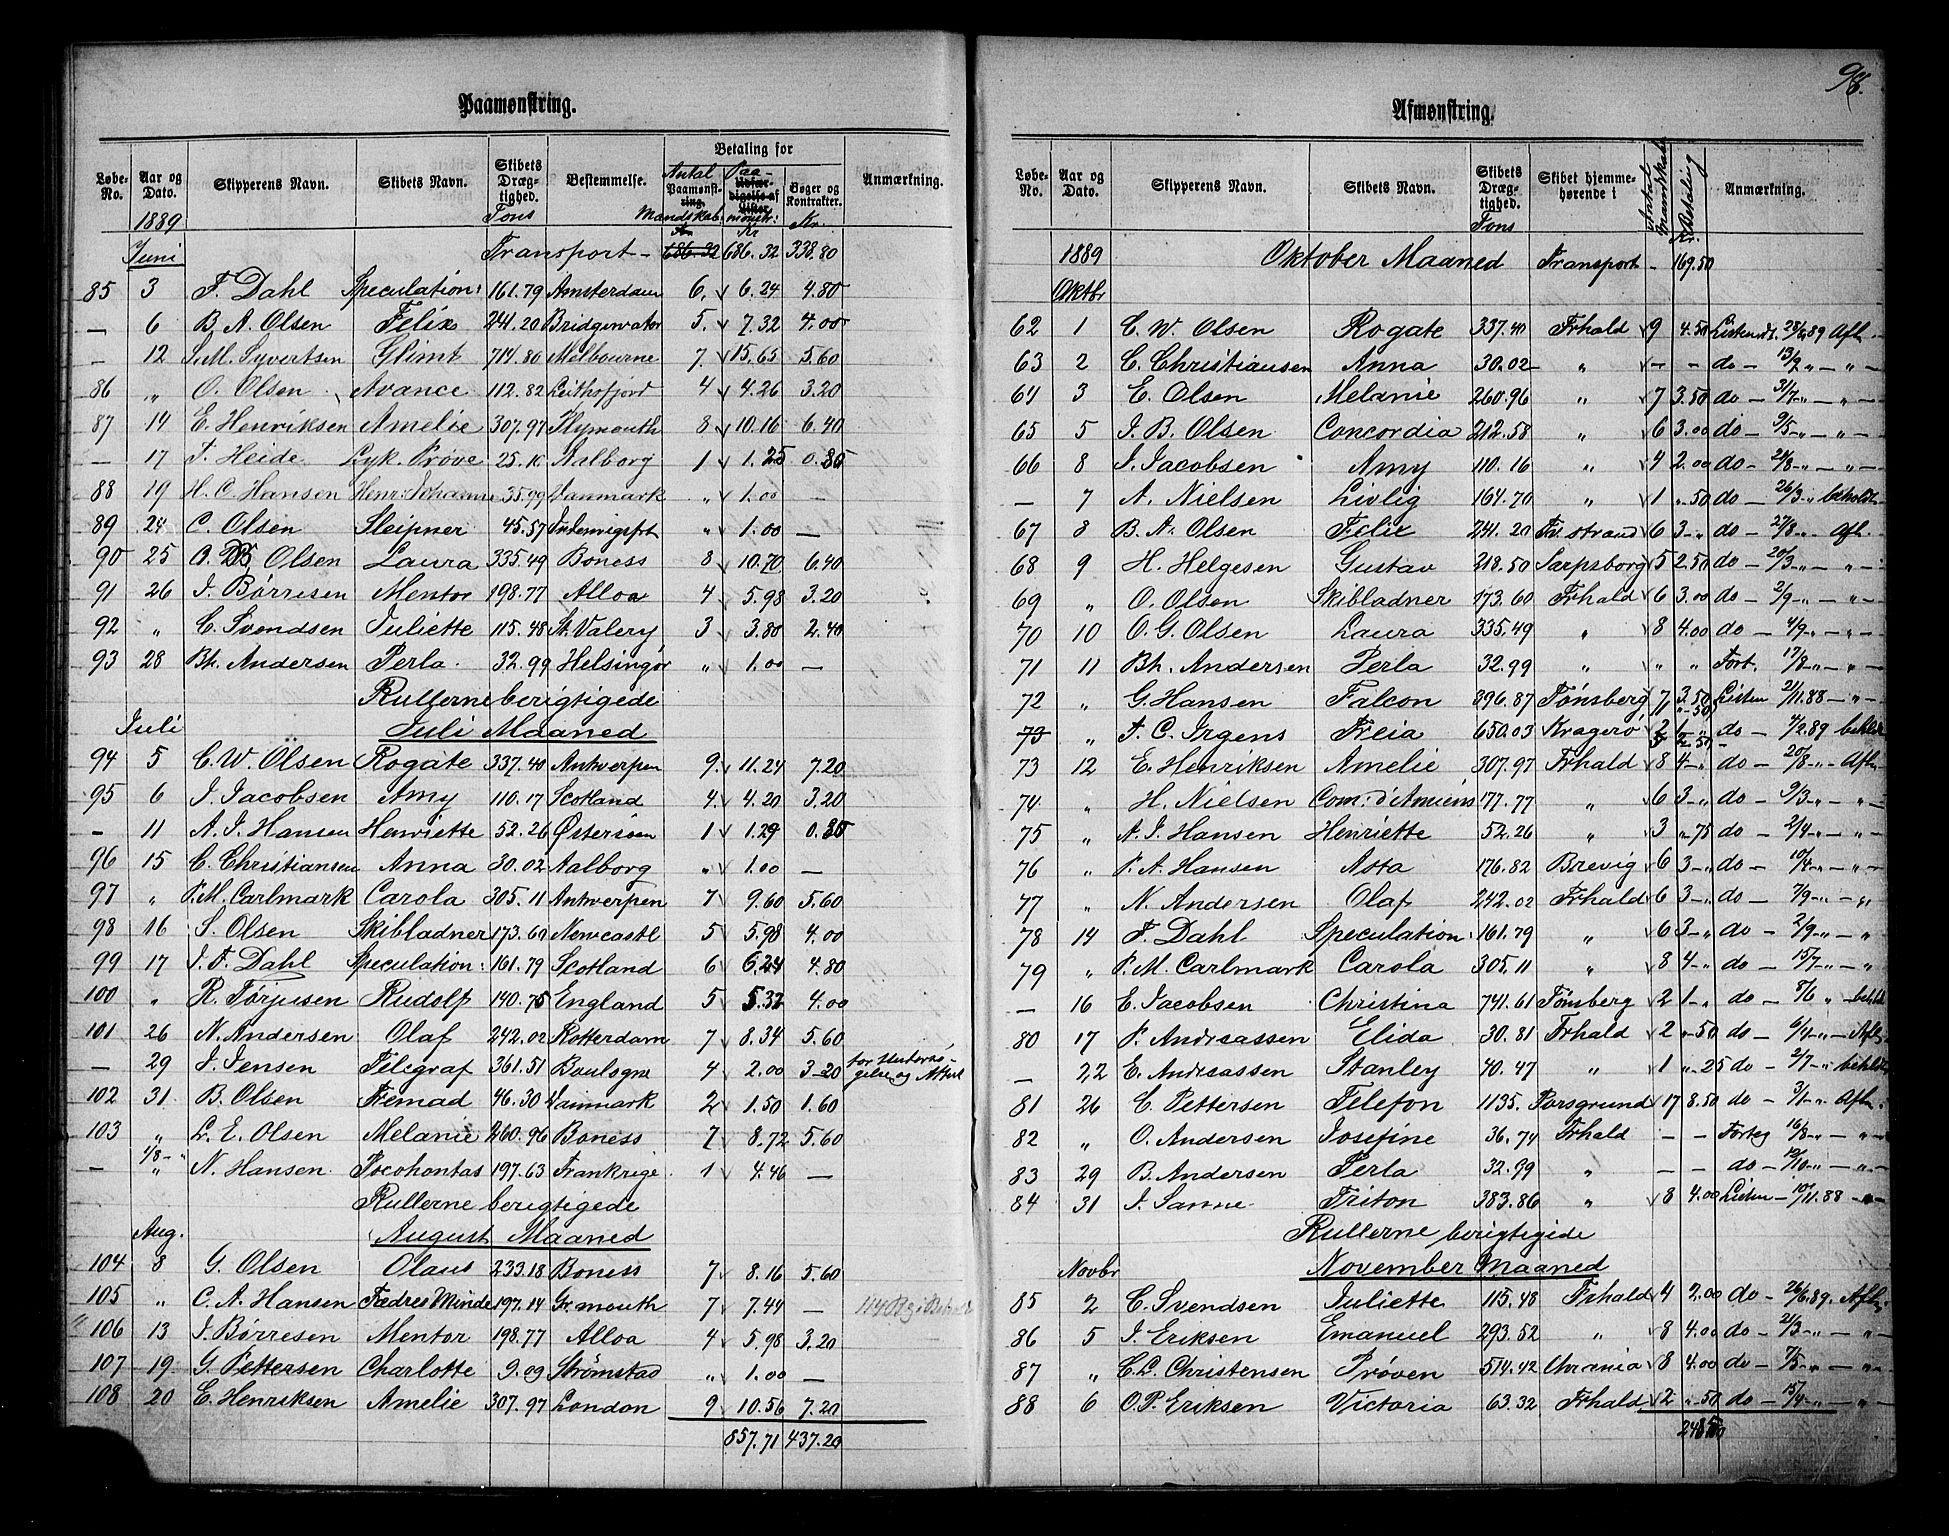 98.
Paamønstring.
Løbe-No. Aar og Dato. Skipperens Navn. Skibets Navn. Skibets Dræg-tighed. Bestemmelse. Betaling for Antal Paamønst-ring. Mandskab. Paa-mønstr: Bøger og Kontrakter. Anmærkning.
1889 Tons Kr Kr.
Juni Transport - 686.32 686.32 338.80
85 3 F. Dahl Speculation: 161.79 Amsterdam 6. 6.24 4.80
— 6 B. A. Olsen Felix 241.20 Bridgewater 5. 7.32 4.00
— 12 S. M. Syvertsen Glimt 714.80 Melbourne 7. 15.65 5.60
86 „ O. Olsen Avance 112.82 Leithofjord 4 4.26 3.20
87 14 E. Henriksen Amelie 307.97 Plymouth 8 10.16 6.40
— 17 T. Heide Lyk. Prøve 25. Aalborg 1 1.25 0.85
88 19 H. C. Hansen Henr: Johanne 35.99 Danmark „ 1.00 —
89 24 C. Olsen Sleipner 45.57 „ 1.00 —
90 25 O. Olsen Laura 335.49 Boness 8 10.70 6.40
91 26 J. Børresen Mentor 198.77 Alloa 4 5.98 3.20
92 „ C. Svendsen Juliette 115.48 St. Valery 3 3.80 2.40
93 28 Bh. Andersen Perla. 32.99 Helsingør „ 1.00 —
Rullerne berigtigede
Juli Juli Maaned
94 5 C. W. Olsen Rogate 337.40 Antwerpen 9. 11.24 7.20
95 6 J. Jacobsen Amy 110.17 Scotland 4 4.20 3.20
- 11 A. J. Hansen Henriette 52.26 Østersøen 1 1.29 0.85
96 15 C. Christiansen Anna 30.02 Aalborg „ 1.00 —
97 „ P. M. Carlmark Carola 305.11 Antwerpen 7 9.60 5.60
98 16 S. Olsen Skibladner 173.60 Newcastl 5 5.98 4.00
99 17 J. F. Dahl Speculation: 161.79 Scotland 6 6.24 4.80
100 „ R. Torjusen Rudolf 140.75 England 5 5.32 4.00
101 26 N. Andersen Olaf 242.02 Rotterdam 7 8.34 5.60
— 29 J. Jensen Telegraf 361.51 Boulogne 4 2.00 3.20 for
102 31 B. Olsen Fremad 46.30 Danmark 2 1.50 1.60
103 „ L. E. Olsen Melanie 260.96 Boness 7 8.72 5.60
— 1/8 - „ N. Hansen. Pocohontas 197.63 Frankrige 1 4.46 —
Rullerne berigtigede
Aug. August Maaned
104 8 G. Olsen Olaus 233.18 Boness 7 8.16 5.60
105 „ C. A. Hansen Fædres Minde 197.14 Gr. mouth 7 7.44 —
106 13 J. Børresen Mentor 198.77 Alloa 4 5.98 3.20
107 19 G. Pettersen Charlotte 9.09 Strømstad „ 1.00 —
108 20 E. Henriksen Amelie 307.97 London 9 10.56 7.20
857.71 437.20
Afmønstring.
Løbe-No. Aar og Dato. Skipperens Navn. Skibets Navn. Skibets Dræg-tighed. Skibet hjemme-hørende i Antal Mandskab Betaling Anmærkning.
Tons Kr.
1889 Oktober Maaned Transport - 169.50
Oktbr
62 1 C. W. Olsen Rogate 337.40 Frhald 9 4.50 89 Afm.
63 2 C. Christiansen Anna 30.02 „ — - do — 13/7 — „ —
64 3 E. Olsen Melanie 260.96 „ 7 3.50 do — 31/7 - „ — „ —
65 5 J. B. Olsen Concordia 212.58 „ 6 3.00 do — 9/5 - „ — „ —
66 8 J. Jacobsen Amy 110.16 „ 4 2.00 do - 24/8 - „ — „ —
— 7 A. Nielsen Livlig 164.70 „ 1 „ 50 do — 26/3 „ beholdt
67 8 B. A. Olsen Felix 241.20 Tv. strand 6 3 - „ do — 27/8 - „ Afm.
68 9 H. Helgesen Gustav 218.50 Sarpsborg 5 2.50 do — 20/3 „ — „
69 „ O. Olsen Skibladner 173.60 Frhald 6 3.00 do — 2/9 - „ — „ —
70 10 O. G. Olsen Laura 335.49 „ 8 4.00 do — 4/9 - „ — „ —
71 11 Bh. Andersen Perla 32.99 „ „ „ Fort. 17/8 - „ — „ —
72 „ G. Hansen Falcon 396.87 Tønsberg 7 3.50 Listen 21/11.88 — „ —
73 „ F. C. Irgens Freia 650.03 Kragerø do — 4/2.89 beholdt
73 12 E. Henriksen Amelie 307.97 Frhald 8 4 - „ do — 20/8 - „ Afm
74 „ H. Nielsen Com: d'Amiens 177.77 „ 6 3 - „ do — 9/3 - „ — „ —
75 „ A. J. Hansen Henriette 52.26 „ 3 „ 75 do — 2/4 - „ — „ —
76 „ P. A. Hansen Asta 176.82 Brevig 6 3 - „ do — 10/4 - „ — „ —
77 „ N. Andersen Olaf 242.02 Frhald 6 3 - „ do — 7/9 - „ — „
78 14 F. Dahl Speculation: 161.79 „ 6 3 - „ do — 2/9 - „ — „
79 „ P. M. Carlmark Carola 305.11 „ 8 4 - „ do — 15/7 - „ — „
— 16 E. Jacobsen Christina 741.61 Tønsberg 2 1 - „ do — 8/6 „ — beholdt
80 17 P. Andreassen Elida 30.81 Frhald 2 „ 50 do — 6/4 - „ — Afm.
— 22 E. Andreassen Stanley 40.47 „ 1 „ 25 do — 2/7 - „ beholdt
81 26 C. Pettersen Telefon 1135. Porsgrund 17 8.50 do — 3/1 - „ Afm.
82 „ O. Andersen Josefine 36.74 Frhald — - Forteg 16/8 - „ — „ —
83 29 B. Andersen Perla 32.99 „ — — do — 12/10 - „ — „ —
84 31 J. Sanne Triton 383.86 „ 8 4.00 Listen — 10/11.88 — „
Rullerne berigtigede
Novbr November Maaned
85 2 C. Svendsen Juliette 115.48 Frhald 4 2.00 do — 26/6.89. Afm.
86 5 J. Eriksen Emanuel 293.52 „ 8 4.00 do — 21/3 - „ — „ —
87 „ C. L. Christensen Prøven 514.42 Chrania 8 4.00 do — 7/5 - „ — „
88 6 O. P. Eriksen Victoria 63.32 Frhald 2 „ 50 do — 15/4 - „ — „ —